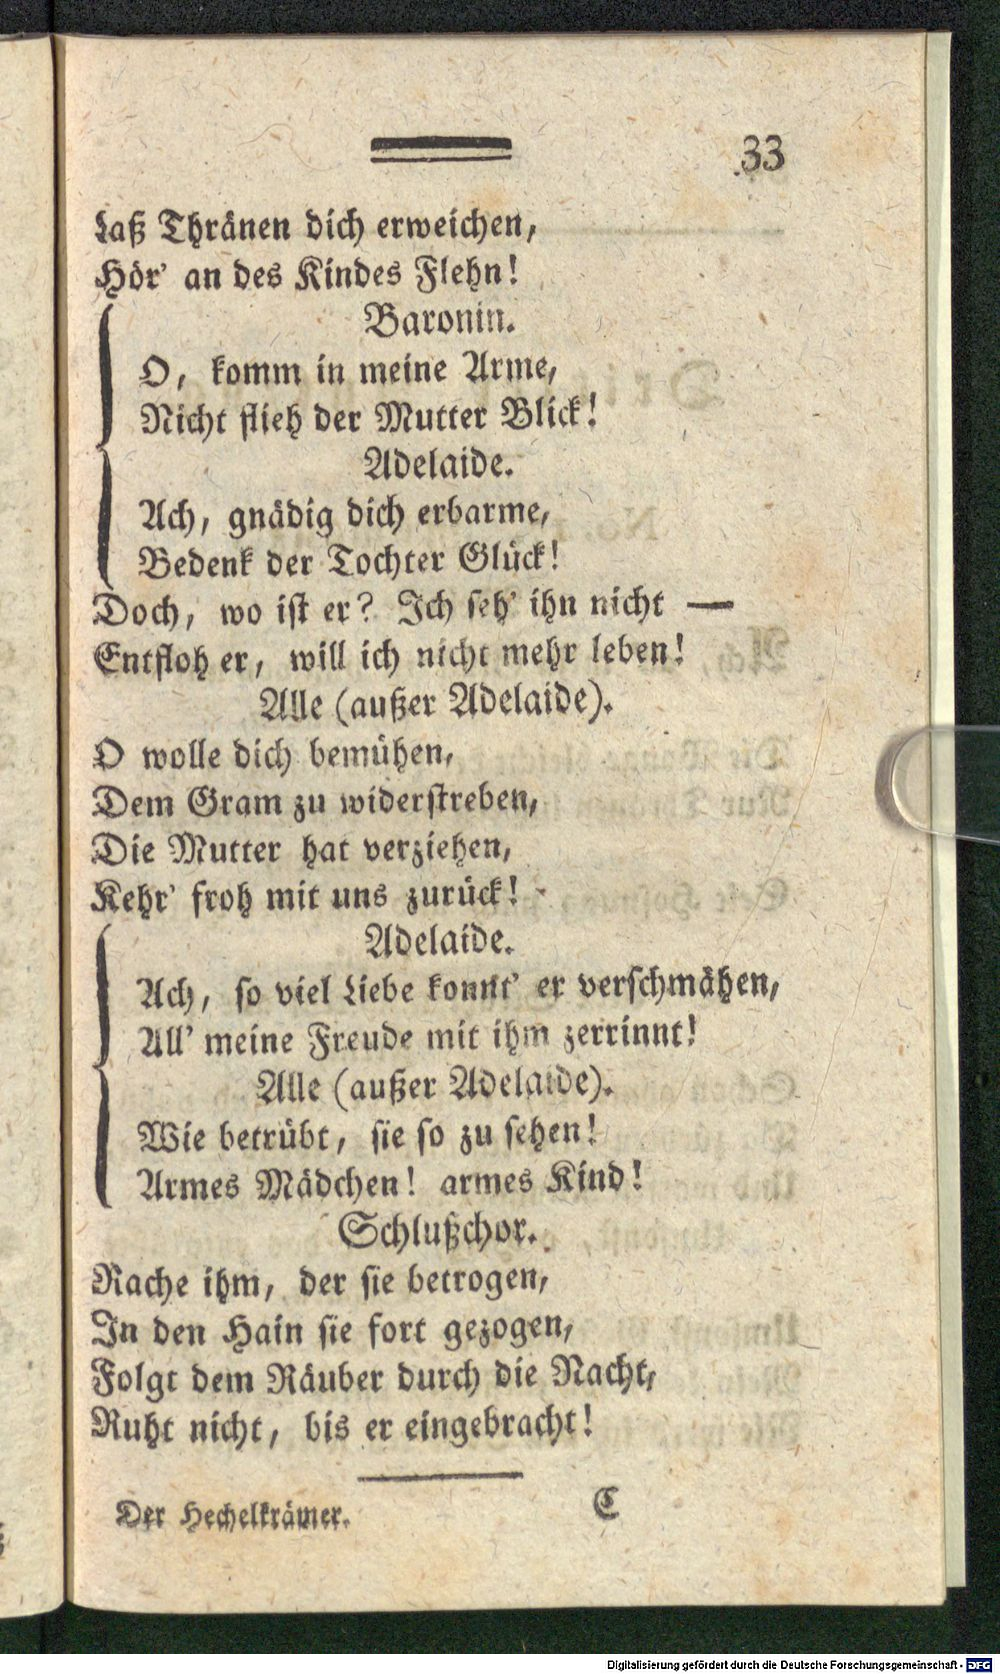 33
Laß Thränen dich erweichen,
Hör' an des Kindes Flehn!
Baronin.
O, komm in meine Arme,
Nicht flieh der Mutter Blick!
Adelaide.
Ach, gnädig dich erbarme,
Bedenk der Tochter Glück!
Doch, wo ist er? Ich seh' ihn nicht —
Entfloh er, will ich nicht mehr leben!
Alle (außer Adelaide).
O wolle dich bemühen,
Dem Gram zu widerstreben,
Die Mutter hat verziehen,
Kehr' froh mit uns zurück!
Adelaide.
Ach, so viel Liebe konnt' er verschmähen,
All' meine Freude mit ihm zerrinnt!
Alle (außer Adelaide).
Wie betrübt, sie so zu sehen!
Armes Mädchen! armes Kind!
Schlußchor.
Rache ihm, der sie betrogen,
In den Hain sie fort gezogen,
Folgt dem Räuber durch die Nacht,
Ruht nicht, bis er eingebracht!
Der Hechelkrämer. C
Digitalisierung gefördert durch die Deutsche Forschungsgemeinschaft - DFG